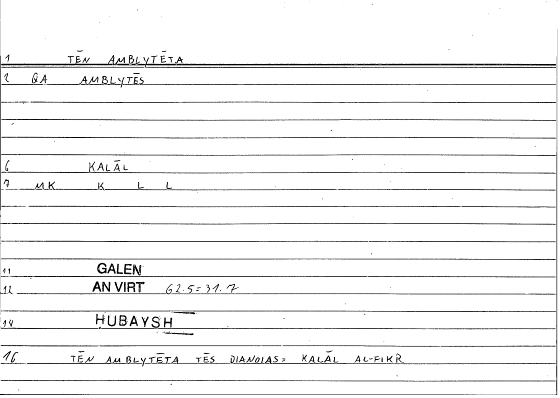 1 TĒN AMBLYTĒTA
2 QA AMBLYTĒS
6 KALĀL
7 MK K L L
11 GALEN
12 AN VIRT 62.5=31.7
14 ḤUBAYSH
16 TĒN AMBLYTĒTA TĒS DIANOIAS= KALĀL AL-FIKR